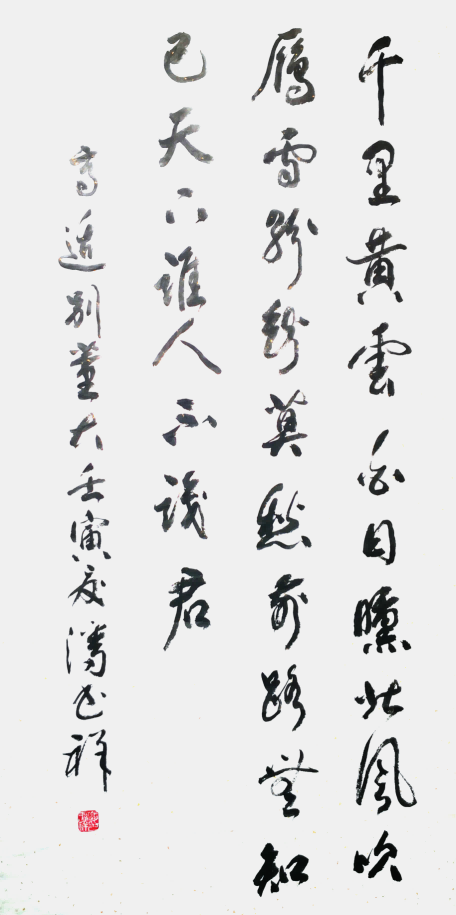 千里黃雲白日曛北風吹
鴈雪紛紛莫愁前路無知
已天下誰人不識君
高適別董大壬寅夏潘祥